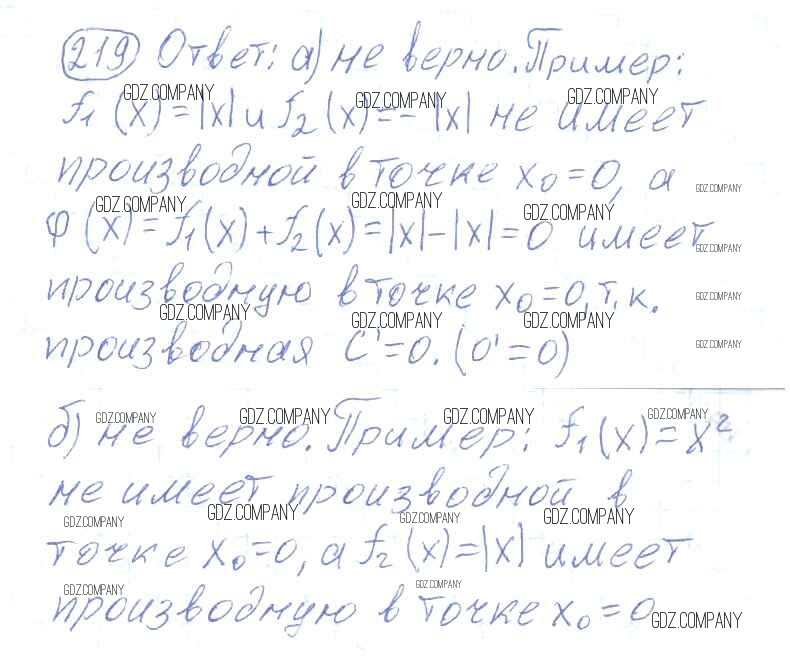 219 Ответ: а) не верно. Пример:
GDZ.COMPANY GDZ.COMPANY GDZ.COMPANY
f₁(x)=|x| и f₂(x)=-|x| не имеет
производной в точке x₀=0, а
GDZ.COMPANY
GDZ.COMPANY GDZ.COMPANY GDZ.COMPANY
φ(x)=f₁(x)+f₂(x)=|x|-|x|=0 имеет
GDZ.COMPANY
производную в точке x₀=0, т.к.
GDZ.COMPANY
GDZ.COMPANY GDZ.COMPANY GDZ.COMPANY
производная C'=0. (0'=0)
GDZ.COMPANY
GDZ.COMPANY GDZ.COMPANY GDZ.COMPANY GDZ.COMPANY
б) не верно. Пример: f₁(x)=x²
не имеет производной в
GDZ.COMPANY GDZ.COMPANY GDZ.COMPANY GDZ.COMPANY
точке x₀=0, а f₂(x)=|x| имеет
GDZ.COMPANY GDZ.COMPANY
производную в точке x₀=0
GDZ.COMPANY